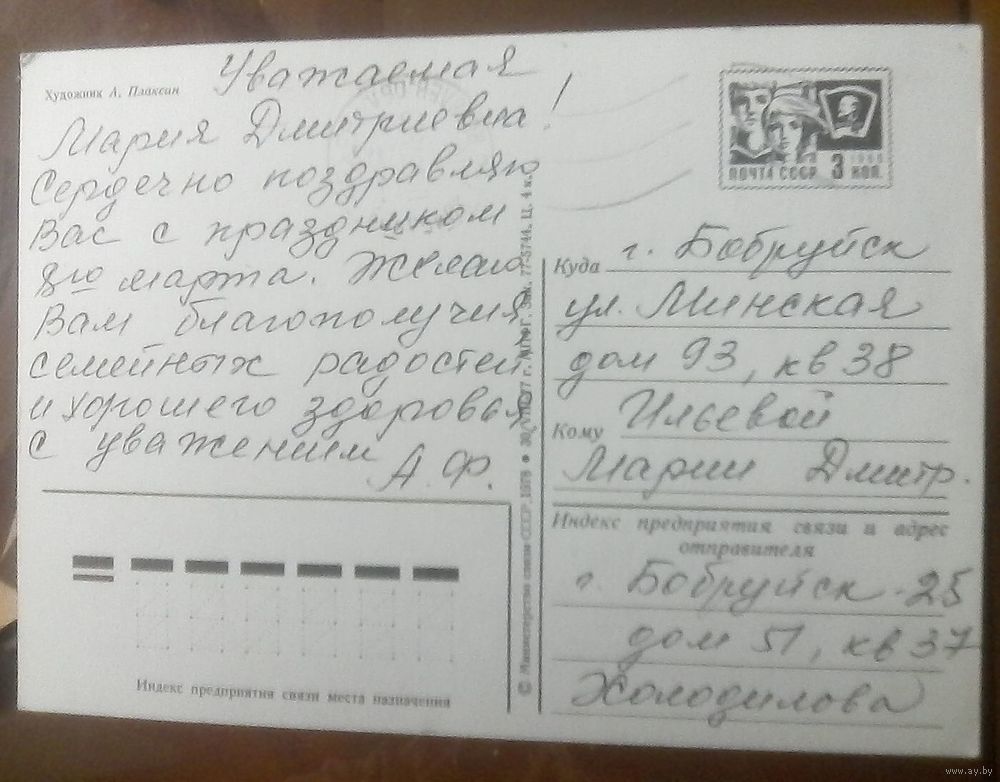 Художник А. Плаксин
Уважаемая
Мария Дмитриевна!
Сердечно поздравляю
Вас с праздником
8го марта. Желаю
Вам благополучия
семейных радостей
и хорошего здоровья
с уважением А. Ф.
ПОЧТА СССР 3 КОП.
Куда г. Бобруйск
ул. Минская
дом 93, кв 38
Кому Ильевой
Марии Дмитр.
Индекс предприятия связи и адрес
отправителя
г. Бобруйск-25
дом 51, кв 37
Холодилова
Индекс предприятия связи места назначения
© Министерство связи СССР, 1978
77-5744. Ц. 4 к.
www.ay.by